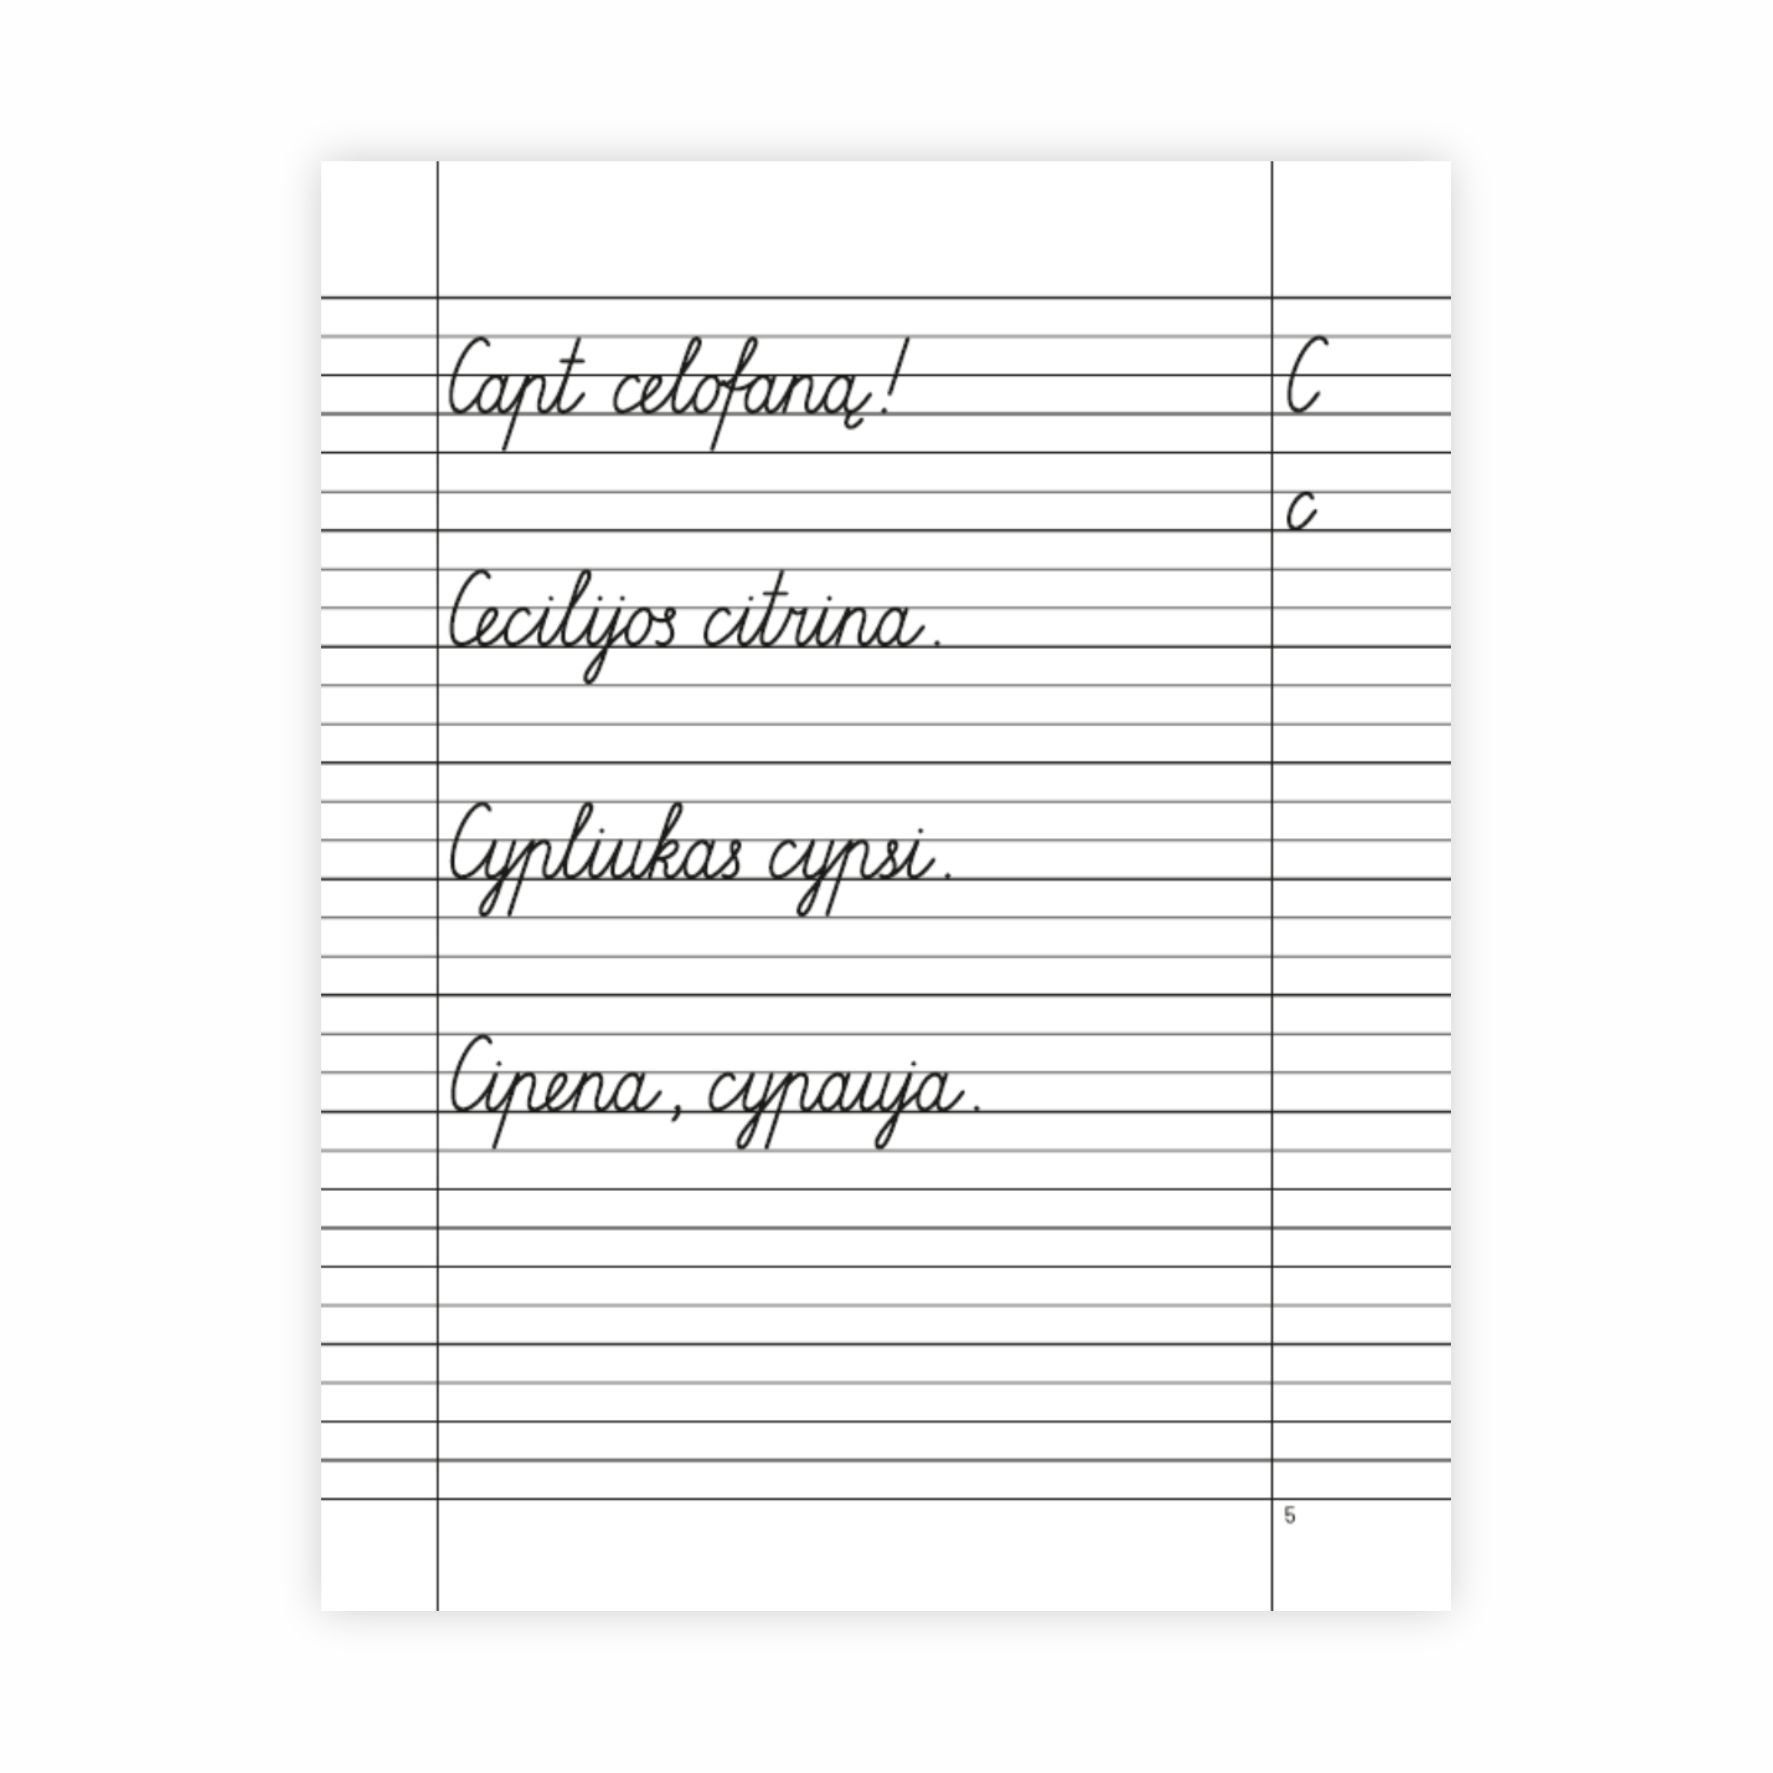 Capt celofaną! C
c
Cecilijos citrina.
Cypliukas cypsi.
Cipena, cypauja.
5